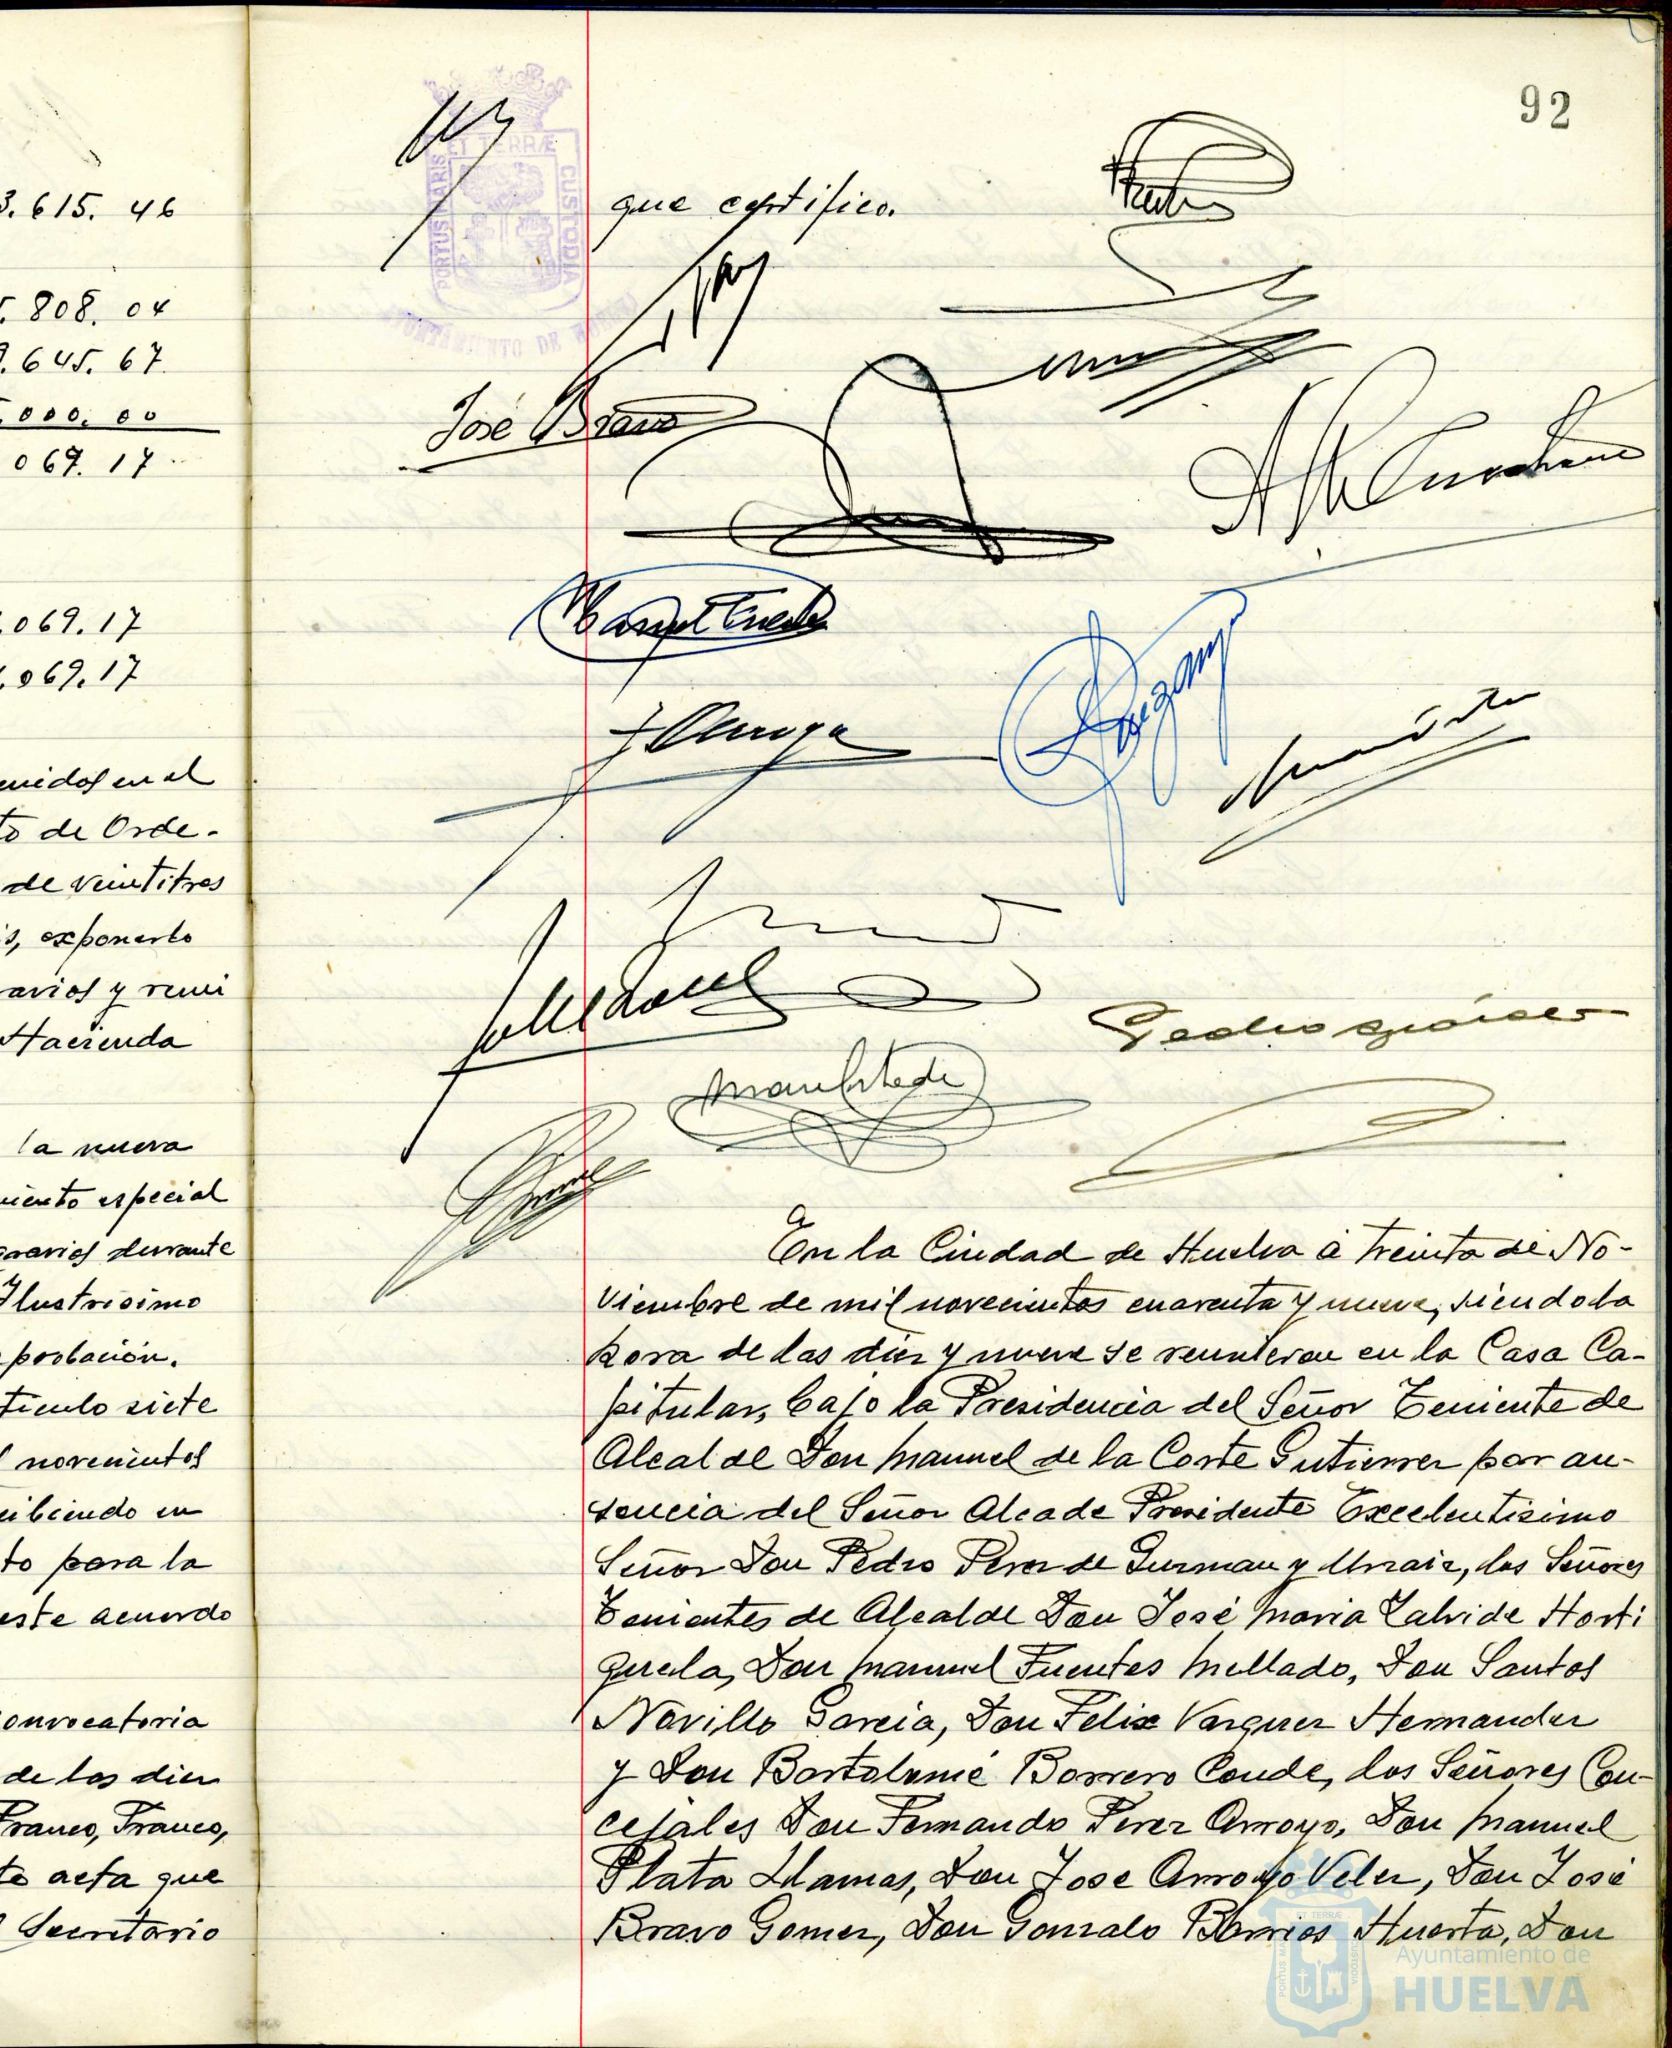 3.615.46
.808.04
.645.67
.000.00
069.17
.069.17
.069.17
enidos en el
to de Orde-
de veintitres
s, exponerlo
arios y remi
Hacienda
la nueva
miento especial
durante
Ilustrisimo
probación.
tículo siete
novecientos
ibiendo en
to para la
este acuerdo
onvocatoria
de las diez
Franco, Franco,
te acta que
Secretario
92
PORTUS MARIS ET TERRÆ CUSTODIA
AYUNTAMIENTO DE HUELVA
que certifico.
José Bravo
En la Ciudad de Huelva a treinta de No-
viembre de mil novecientos cuarenta y nueve, siendo la
hora de las diez y nueve se reunieron en la Casa Ca-
pitular, bajo la Presidencia del Señor Teniente de
Alcalde Don Manuel de la Corte Gutierrez por au-
sencia del Señor Alcade Presidente Excelentisimo
Señor Don Pedro Perez de Guzman y Urzaiz, los Señores
Tenientes de Alcalde Don José Maria Zalvide Horti
guela, Don Manuel Fuentes Mellado, Don Santos
Novillo Garcia, Don Felix Vazquez Hernandez
y Don Bartolomé Borrero Conde, los Señores Con-
cejales Don Fernando Perez Arroyo, Don Manuel
Plata Llamas, Don Jose Arroyo Velez, Don José
Bravo Gomez, Don Gonzalo Barrios Huerta, Don
Ayuntamiento de
HUELVA